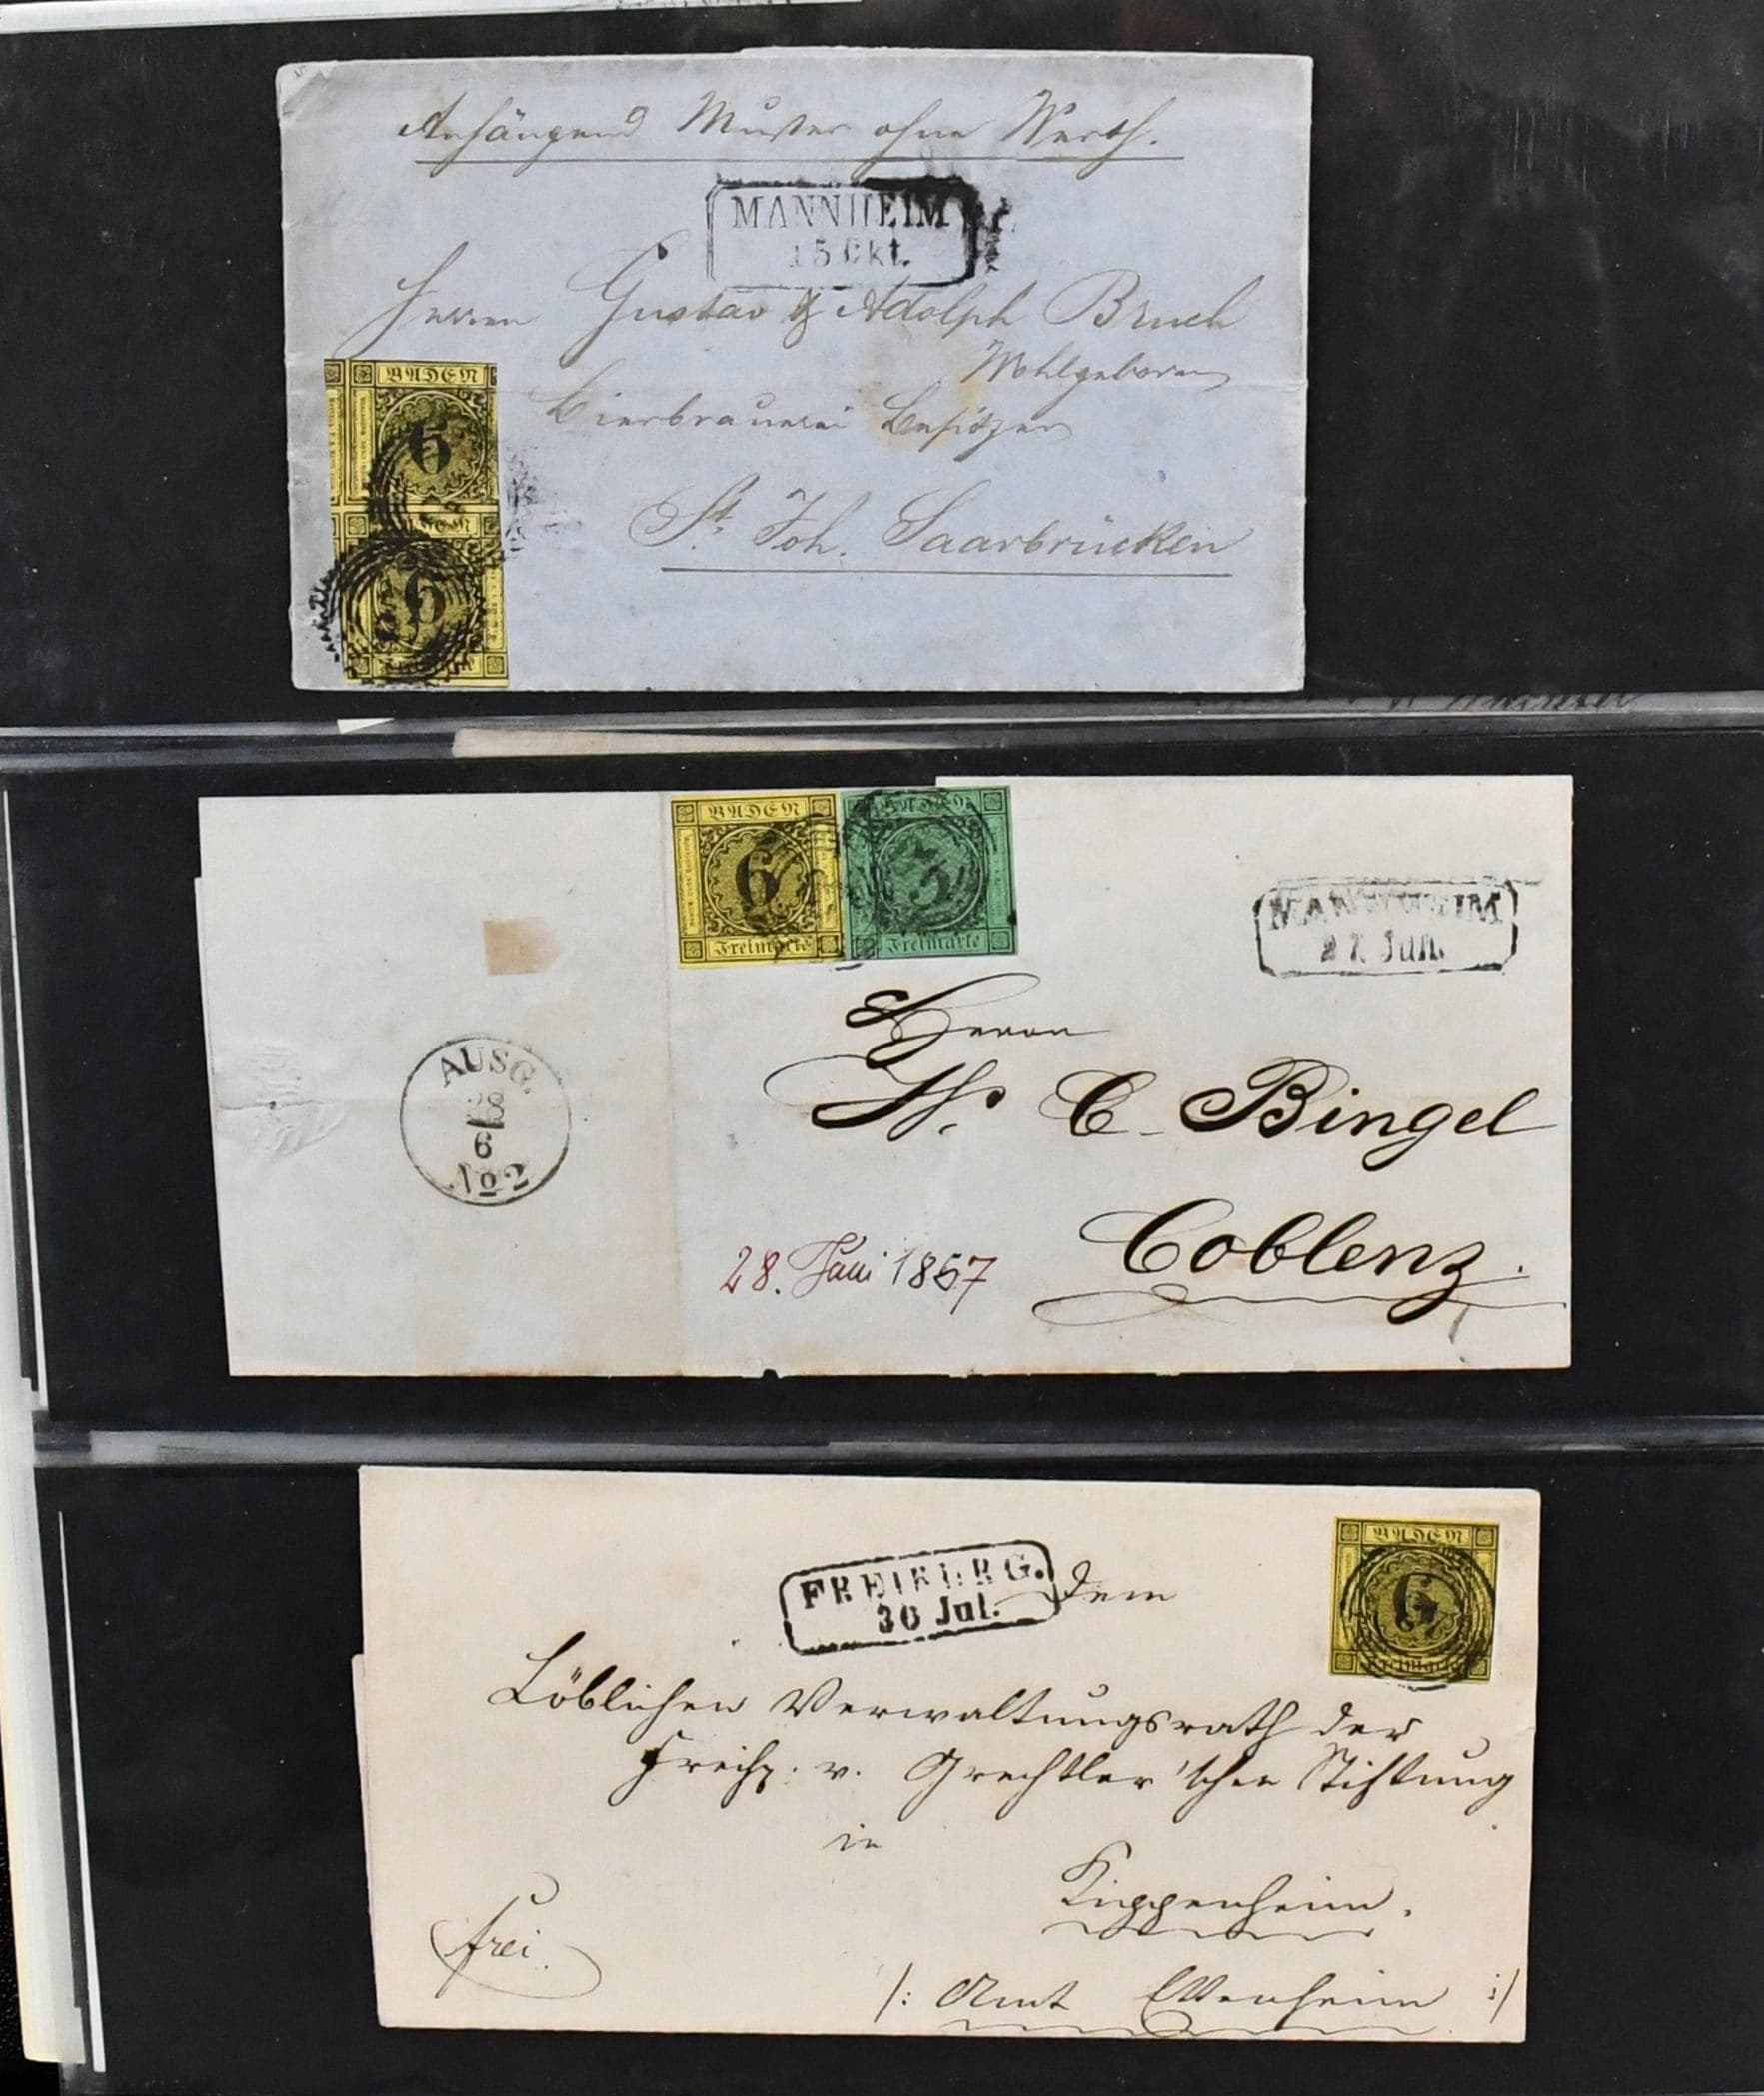 Anhängend Muster ohne Werth.
MANNHEIM
15 Okt.
Herren Gustav & Adolph Bruch
Wohlgeboren
Bierbrauerei Besitzer
St. Joh. Saarbrücken
BADEN
6
BADEN
6
BADEN
6
Freimarke
BADEN
3
Freimarke
MANNHEIM
27 Jun.
AUSG.
28
6
No 2
Herrn
W. C. Bingel
Coblenz.
28. Juni 1857
FREIBURG.
30 Jul.
Dem
BADEN
6
Freimarke
Löblichen Verwaltungsrath der
Freih. v. Grechtler'schen Stiftung
in
Kippenheim.
frei.
/: Amt Ettenheim :/